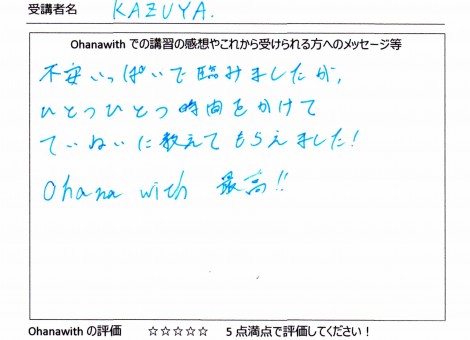 受講者名 KAZUYA.
Ohanawith での講習の感想やこれから受けられる方へのメッセージ等
不安いっぱいで臨みましたが,
ひとつひとつ時間をかけて
ていねいに教えてもらえました!
Ohana with 最高!!
Ohanawith の評価 ☆☆☆☆☆ 5点満点で評価してください!